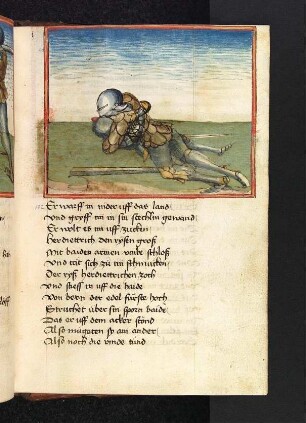 Er warff in nider uff das land
Und gryff im in sin stechlin gewand
Er wolt es im uff zucken
Herdietrich den rysen groß
Mit baiden armen umbe schloß
Und trit sich zu im schmucken
Der ryß herdietrichen zoch
Und stieß in uff die haide
Von bern der edel fürste hoch
Struchet über sin sporn baide
Das er uff dem acker stond
Also mustten so am ander
Also noch die winde tund